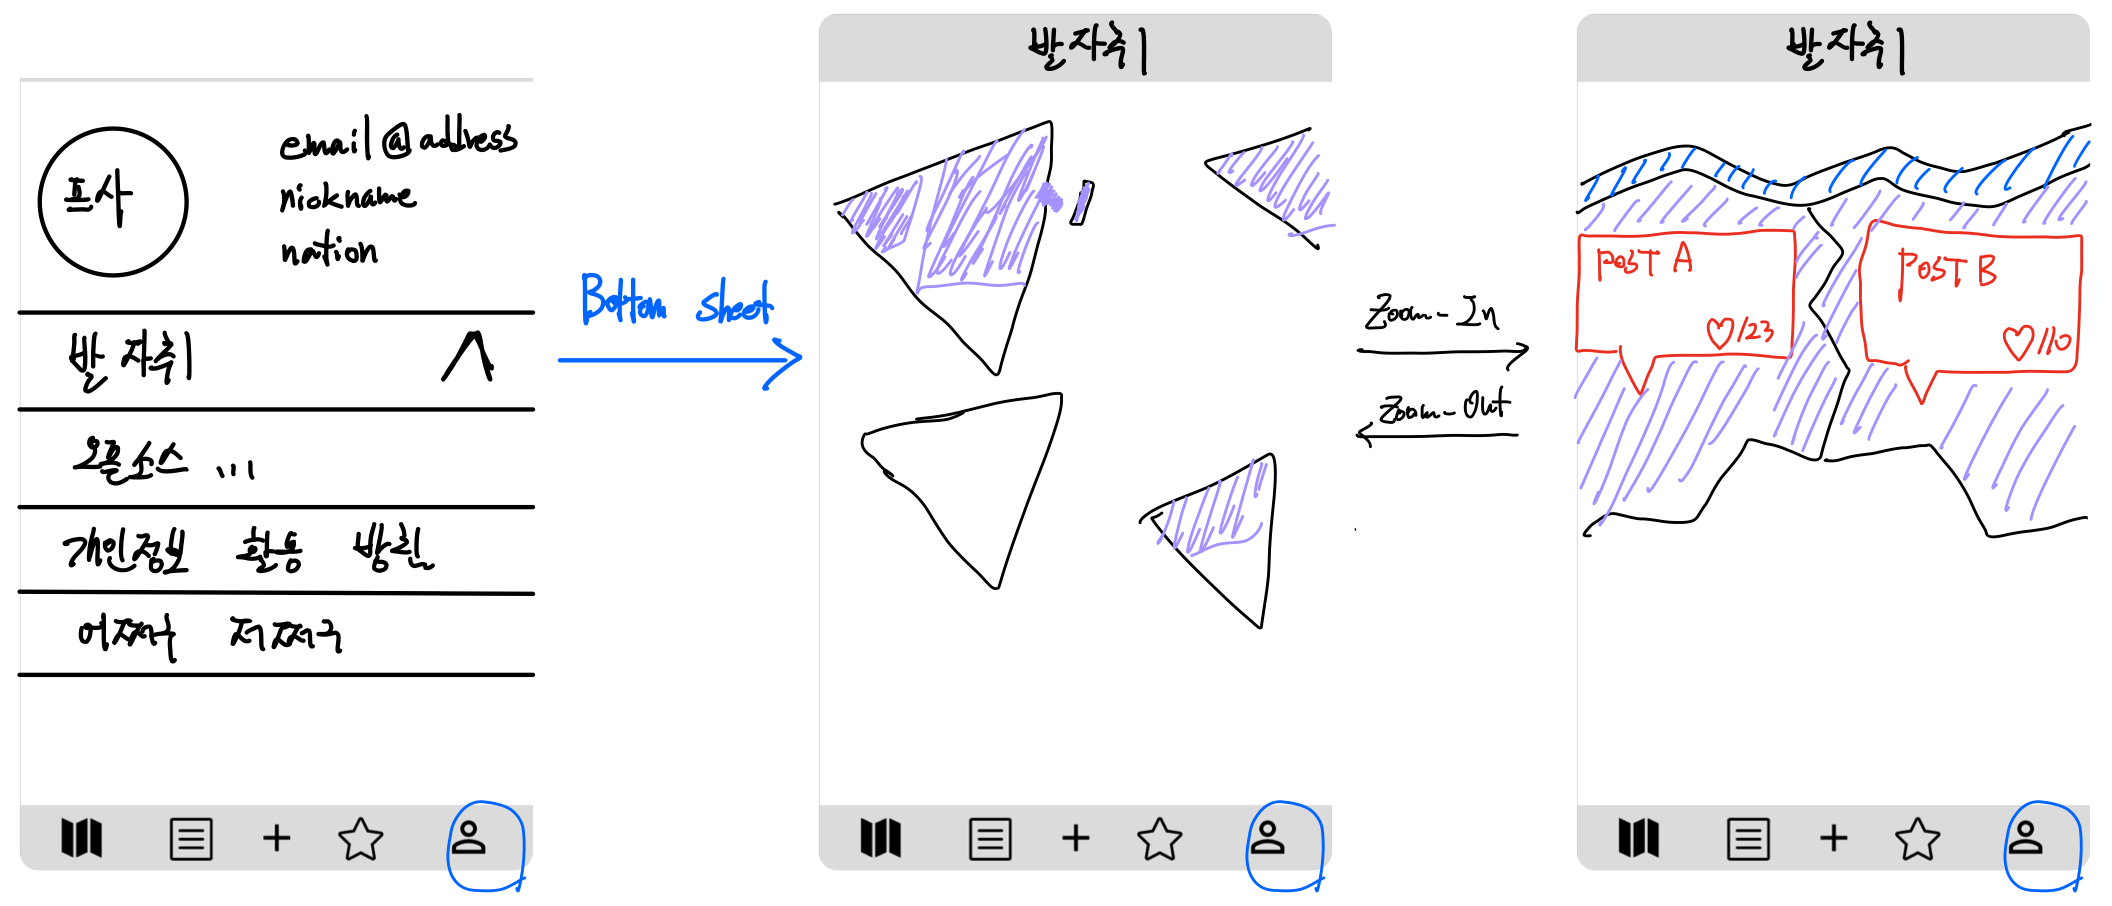 프사
email@address
nickname
nation
발자취
오픈소스 ...
개인정보 활동 방침
어쩌구 저쩌구
Bottom sheet
발자취
Zoom-In
Zoom-Out
발자취
POST A
♡/23
POST B
♡/10